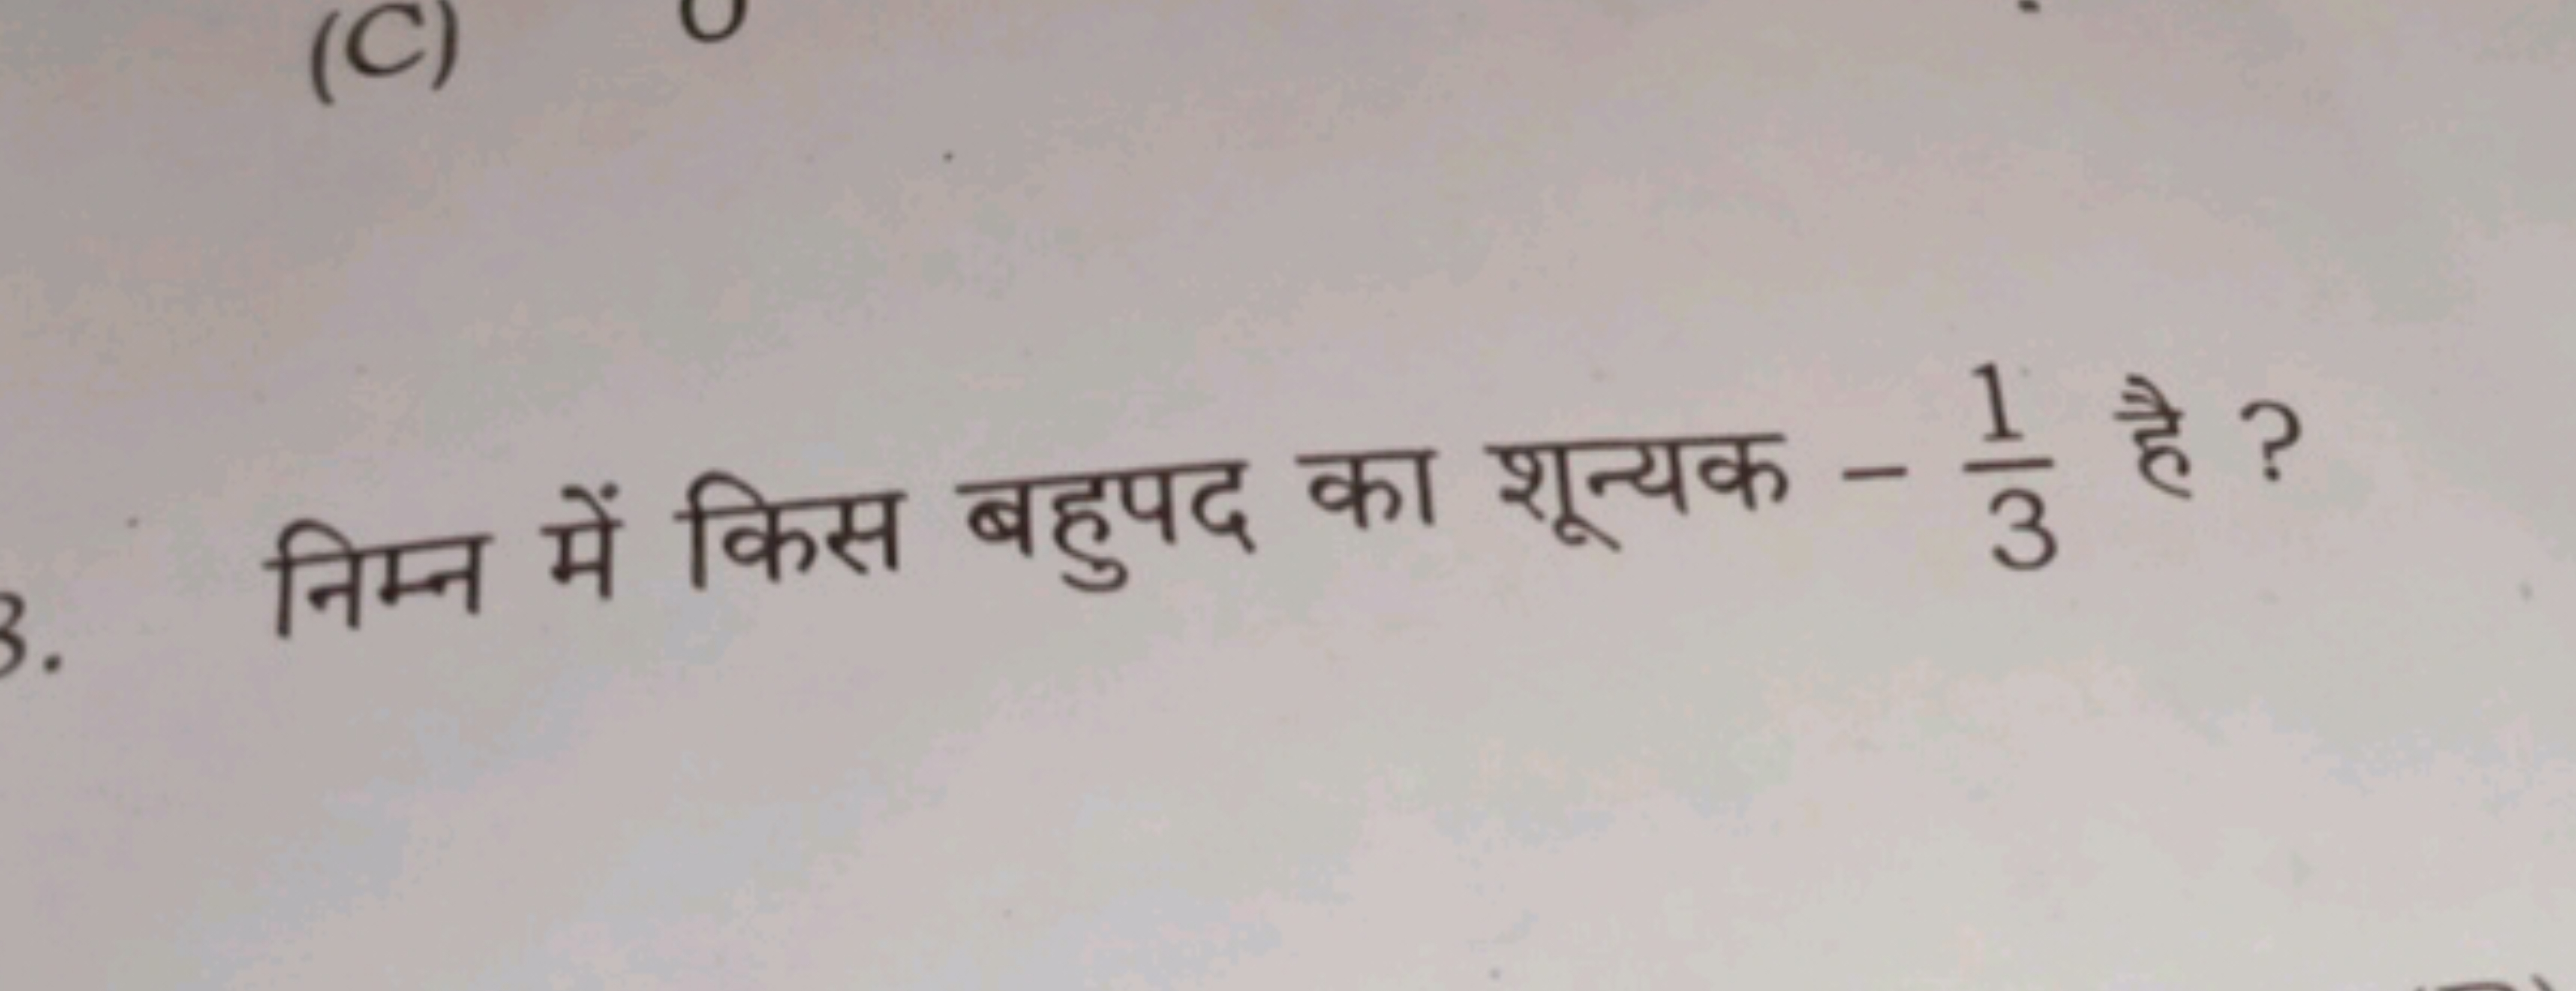 (C) 0
3. निम्न में किस बहुपद का शून्यक - 1/3 है ?